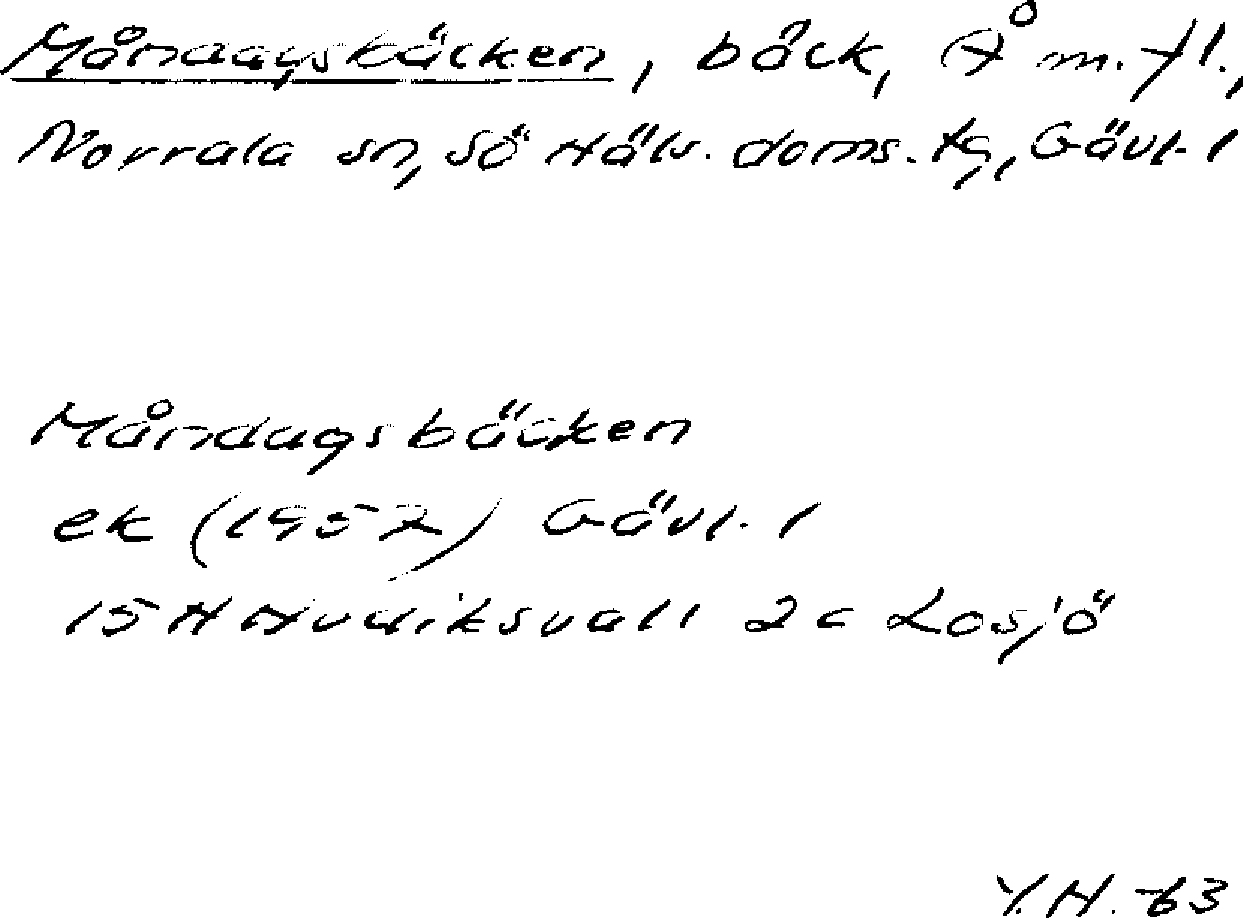 Måndagsbäcken, bäck, Å m. fl.,
Norrala sn, Sö Häls. doms. tg, Gävl. l
Måndagsbäcken
ek (1957) Gävl. l
15 H Hudiksvall 2 c Losjö
Y. H. -63